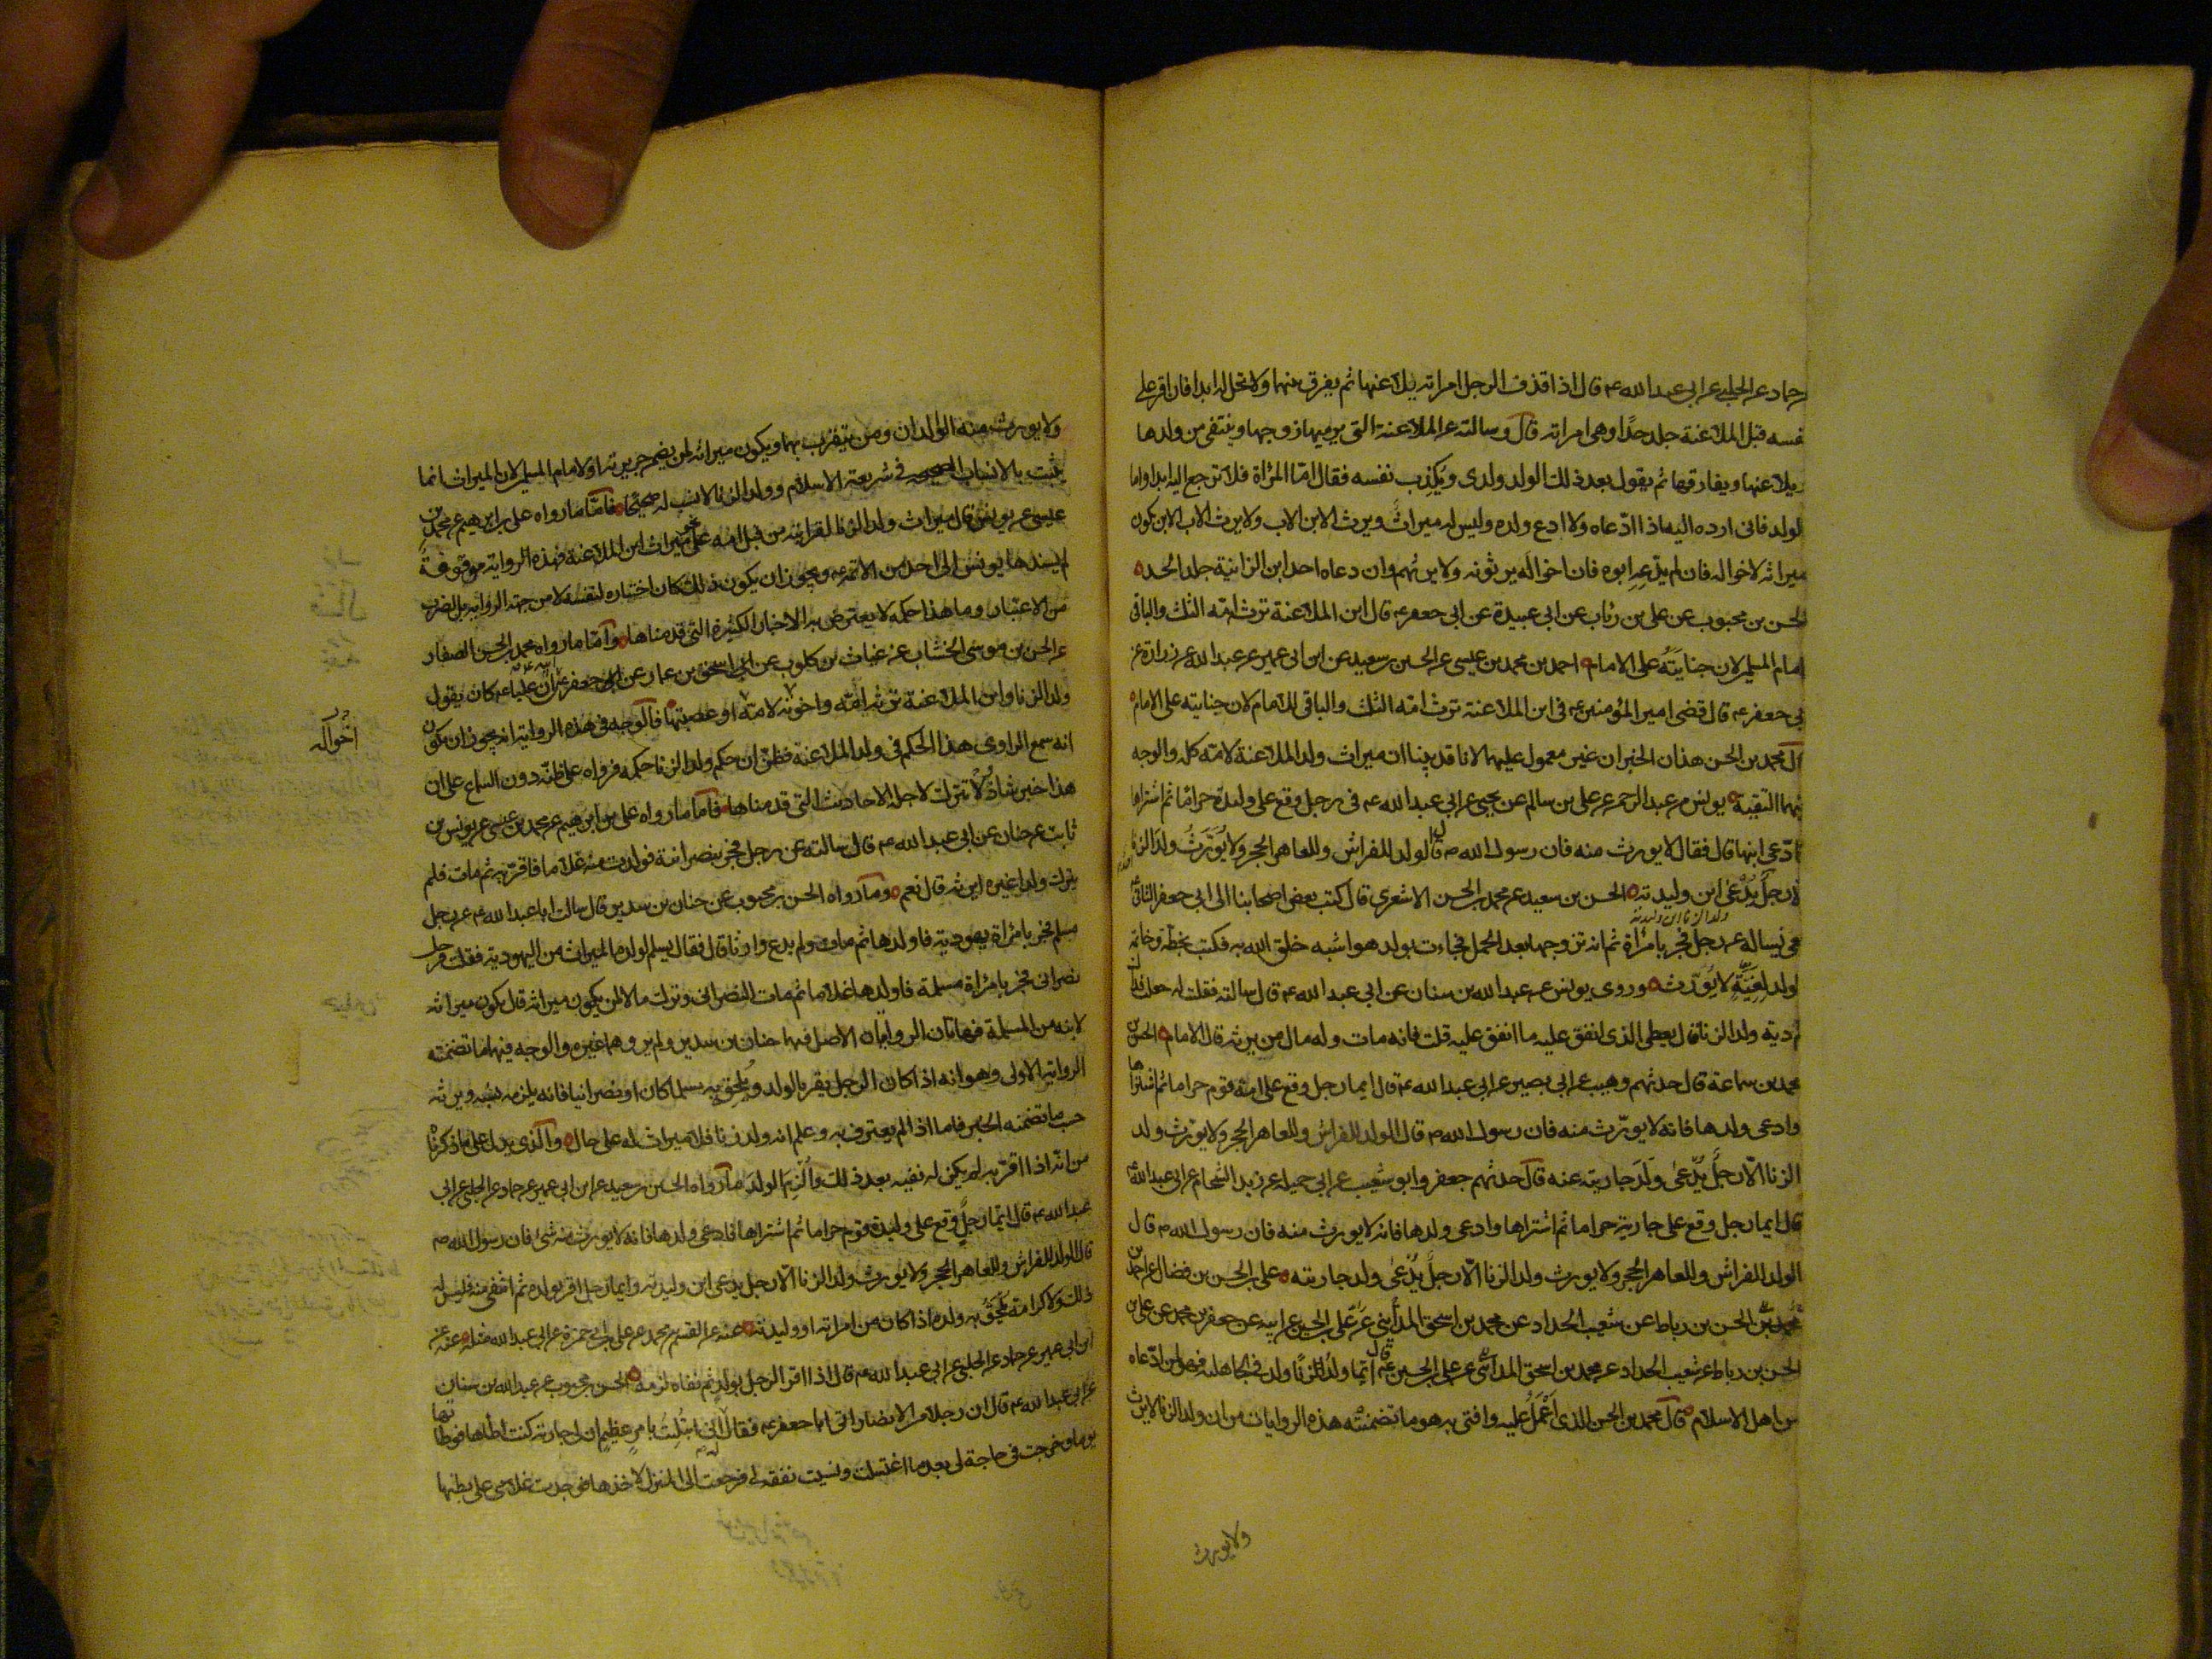 حماد عن الحلبي عن ابي عبد الله ع قال اذا قذف الرجل امراته يلاعنها ثم يفرق بينهما ولا تحل له ابدا فان اقر على
نفسه قبل الملاعنة جلد حدا وهي امراته قال وسالته عن الملاعنة التي يرميها زوجها وينتفي من ولدها
ويلاعنها ويفارقها ثم يقول بعد ذلك الولد ولدي ويكذب نفسه فقال اما المراة فلا ترجع اليه ابدا واما
الولد فاني ارده اليه اذا ادعاه ولا ادع ولده وليس له ميراث ويرث الابن الاب ولا يرث الاب الابن يكون
ميراثه لاخواله فان لم يدعه ابوه فان اخواله يرثونه ولا يرثهم وان دعاه احد ابن الزانية جلد الحد
الحسن بن محبوب عن علي بن رئاب عن ابي عبيدة عن ابي جعفر ع قال ابن الملاعنة ترث امه الثلث والباقي
لامام المسلمين لان جنايته على الامام احمد بن محمد بن عيسى عن الحسين بن سعيد عن ابن ابي عمير عن عبد الله عن زرارة عن
ابي جعفر ع قال قضى امير المؤمنين ع في ابن الملاعنة ترث امه الثلث والباقي للامام لان جنايته على الامام
قال محمد بن الحسن هذان الخبران غير معمول عليهما لانا قد بينا ان ميراث ولد الملاعنة لامه كله والوجه
فيهما التقية يونس عن عبد الرحمن عن علي بن سالم عن يحيى عن ابي عبد الله ع في رجل وقع على وليدة حراما ثم اشتراها
فادعى ابنها قال فقال لا يورث منه فان رسول الله ص قال الولد للفراش وللعاهر الحجر ولا يورث ولد الزنا
الا رجل يدعى ابن وليدته الحسين بن سعيد عن محمد بن الحسن الاشعري قال كتب بعض اصحابنا الى ابي جعفر الثاني ع
معي يساله عن رجل فجر بامراة ثم انه تزوجها بعد الحمل فجاءت بولد هو اشبه خلق الله به فكتب بخطه وخاتمه
الولد لغية لا يورث وروى يونس عن عبد الله بن سنان عن ابي عبد الله ع قال سالته فقلت له جعلت فداك
كم دية ولد الزنا قال يعطى الذي انفق عليه ما انفق عليه قلت فانه مات وله مال من يرثه قال الامام الحسن بن
محمد بن سماعة قال حدثهم وهيب عن ابي بصير عن ابي عبد الله ع قال ايما رجل وقع على امة قوم حراما ثم اشتراها
وادعى ولدها فانه لا يورث منه فان رسول الله ص قال الولد للفراش وللعاهر الحجر ولا يورث ولد
الزنا الا رجل يدعى ولد جاريته عنه قال حدثهم جعفر وابو شعيب عن ابي جميلة عن زيد الشحام عن ابي عبد الله ع
قال ايما رجل وقع على جارية حراما ثم اشتراها وادعى ولدها فانه لا يورث منه فان رسول الله ص قال
الولد للفراش وللعاهر الحجر ولا يورث ولد الزنا الا رجل يدعى ولد جاريته علي بن الحسن بن فضال عن احمد بن
الحسن بن رباط عن شعيب الحداد عن محمد بن اسحق المدايني عن علي بن الحسين عن ابيه عن جعفر بن محمد عن علي بن
الحسن بن رباط عن شعيب الحداد عن محمد بن اسحق المدايني عن علي بن الحسين ع قال ايما ولد الزنا ولد في الجاهلية فهو لمن ادعاه
من اهل الاسلام قال محمد بن الحسن الذي اعمل عليه وافتي به هو ما تضمنته هذه الروايات من ان ولد الزنا لا يرث
ولا يورث
ولا يورث منه الوالدان ومن يتقرب بهما ويكون ميراثه لمن يضمن جريرته او لامام المسلمين لان الميراث انما
يثبت بالانساب الصحيحة في شريعة الاسلام وولد الزنا لا نسب له صحيحا فاما ما رواه علي بن ابراهيم عن محمد بن
عيسى عن يونس قال ميراث ولد الزنا لقرابته من قبل امه على نحو ميراث ابن الملاعنة فهذه الرواية موقوفة
لم يسندها يونس الى احد من الائمة ع ويجوز ان يكون ذلك كان اختياره لنفسه لا من جهة الرواية بل لضرب
من الاعتبار وما هذا حكمه لا يعترض به الاخبار الكثيرة التي قدمناها واما ما رواه محمد بن الحسن الصفار
عن الحسن بن موسى الخشاب عن غياث بن كلوب عن اسحق بن عمار عن جعفر عن ابيه ع ان عليا ع كان يقول
ولد الزنا وابن الملاعنة ترثه امه واخوته لامه او عصبتها فالوجه في هذه الرواية انه يجوز ان يكون
اخواله
انه سمع الراوي هذا الحكم في ولد الملاعنة فظن ان حكم ولد الزنا حكمه فرواه على ظنه دون السماع على ان
هذا خبر شاذ لا تترك لاجله الاحاديث التي قدمناها فاما ما رواه علي بن ابراهيم عن محمد بن عيسى عن يونس بن
ثابت عن حنان عن ابي عبد الله ع قال سالته عن رجل فجر بنصرانية فولدت منه غلاما فاقر به ثم مات فلم
يترك ولدا غيره ايرثه قال نعم وما رواه الحسن بن محبوب عن حنان بن سدير قال سالت ابا عبد الله ع عن رجل
مسلم فجر بامراة يهودية فاولدها ثم مات ولم يدع وارثا قال فقال يسلم لولده الميراث من اليهودية فقلت فرجل
نصراني فجر بامراة مسلمة فاولدها غلاما ثم مات النصراني وترك مالا لمن يكون ميراثه قال يكون ميراثه
لابنه من المسلمة فهاتان الروايتان الاصل فيهما حنان بن سدير ولم يروهما غيره والوجه فيهما ما تضمنته
الرواية الاولى وهو انه اذا كان الرجل يقر بالولد ويلحق به مسلما كان او نصرانيا فانه يلزمه نسبه ويرثه
حسب ما تضمنه الخبر فاما اذا لم يعترف به وعلم انه ولد زنا فلا ميراث له على حال والذي يدل على ما ذكرناه
من انه اذا اقر به لم يكن له نفيه بعد ذلك والزم الولد ما رواه الحسين بن سعيد عن ابن ابي عمير عن حماد عن الحلبي عن ابي
عبد الله ع قال ايما رجل وقع على وليدة قوم حراما ثم اشتراها فادعى ولدها فانه لا يورث منه شئ فان رسول الله ص
قال الولد للفراش وللعاهر الحجر ولا يورث ولد الزنا الا رجل يدعى ابن وليدته وايما رجل اقر بولده ثم انتفى منه فليس له
ذلك ولا كرامة يلحق به ولده اذا كان من امراته او وليدته عنه عن القسم بن محمد عن علي بن ابي حمزة عن ابي عبد الله مثله عنه عن
ابن ابي عمير عن حماد عن الحلبي عن ابي عبد الله ع قال اذا اقر الرجل بولد ثم نفاه لزمه الحسن بن محبوب عن عبد الله بن سنان
عن ابي عبد الله ع قال ان رجلا من الانصار اتى ابا جعفر ع فقال اني ابتليت بامر عظيم ان لي جارية كنت اطاها فوطاتها
يوما وخرجت في حاجة لي بعد ما اغتسلت ونسيت نفقة لي فرجعت الى المنزل لاخذها فوجدت غلامي على بطنها